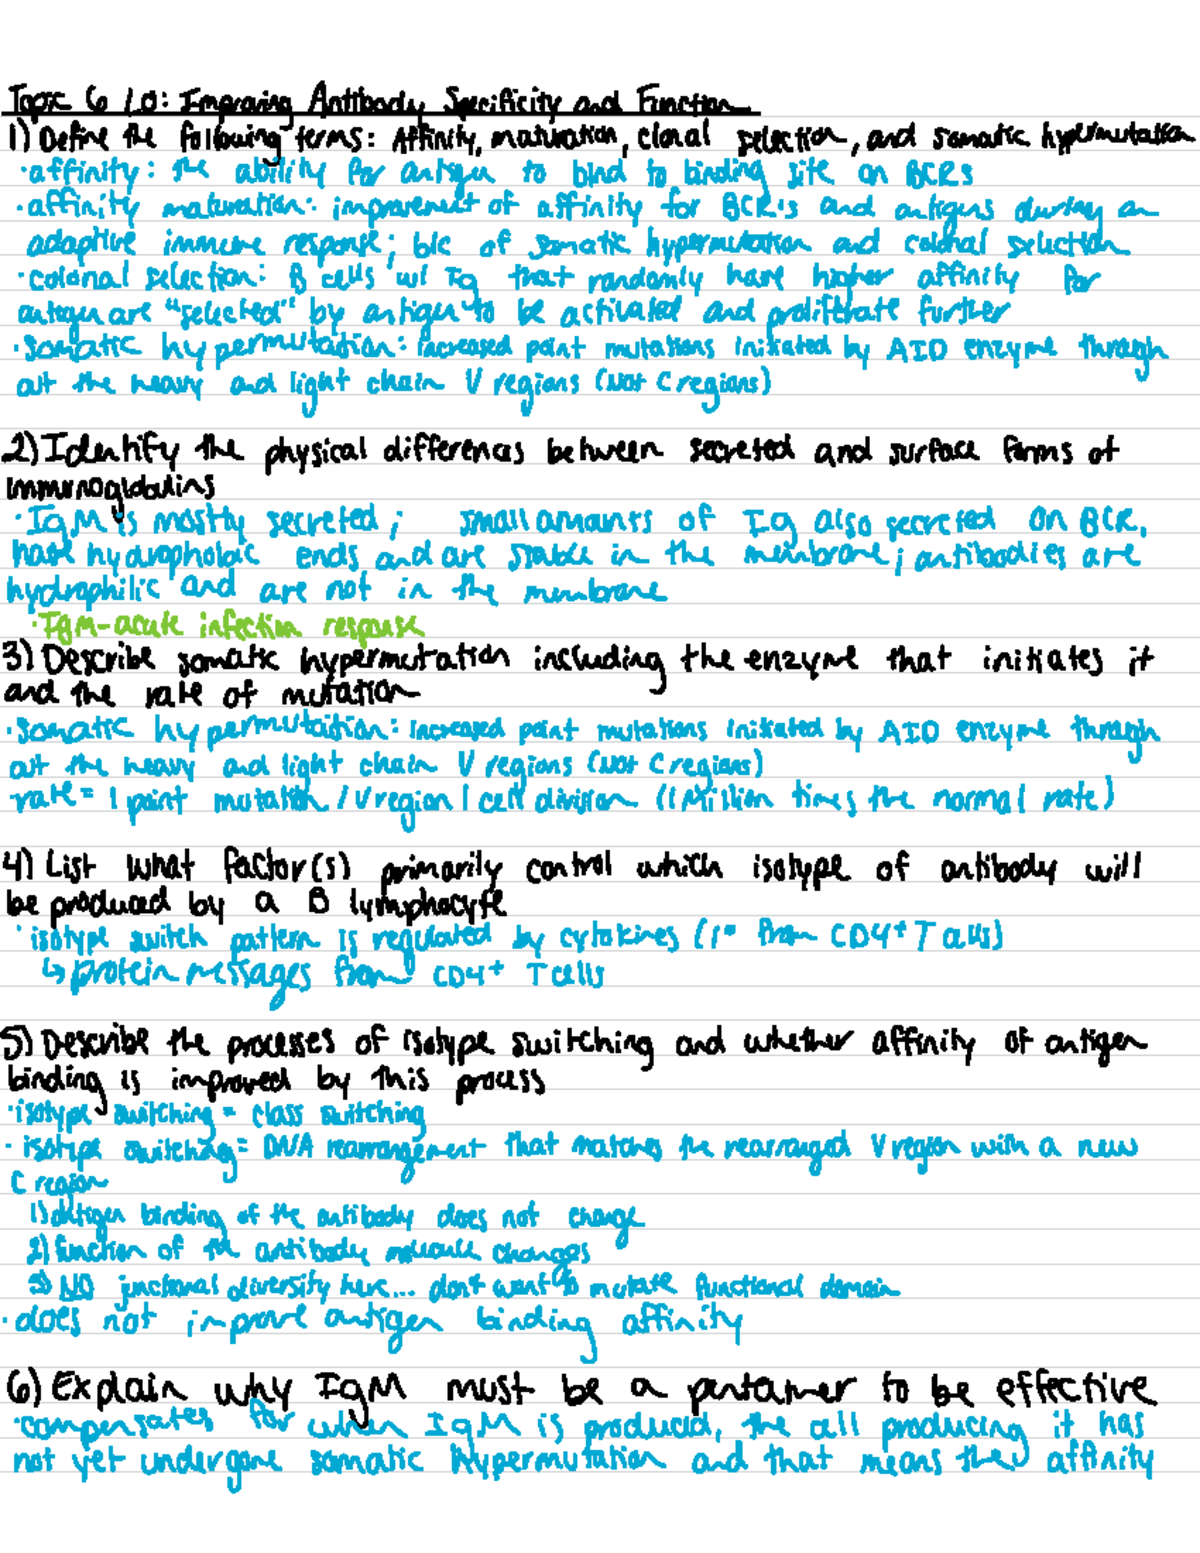 Topic 6 LO: Improving Antibody Specificity and Function
1) Define the following terms: Affinity, maturation, clonal selection, and somatic hypermutation
·affinity: the ability for antigen to bind to binding site on BCRs
·affinity maturation: improvement of affinity for BCR's and antigens during an
adaptive immune response; b/c of somatic hypermutation and colonal selection
·colonal selection: B cells w/ Ig that randomly have higher affinity for
antigen are "selected" by antigen to be activated and proliferate further
·somatic hypermutation: increased point mutations initiated by AID enzyme through
out the heavy and light chain V regions (Not C regions)
2) Identify the physical differences between secreted and surface forms of
immunoglobulins
·IgM is mostly secreted; small amounts of Ig also secreted on BCR,
have hydrophobic ends and are stable in the membrane; antibodies are
hydrophilic and are not in the membrane
·IgM-acute infection response
3) Describe somatic hypermutation including the enzyme that initiates it
and the rate of mutation
·somatic hypermutation: increased point mutations initiated by AID enzyme through
out the heavy and light chain V regions (Not C regions)
·rate = 1 point mutation / V region / cell division (1 Million times the normal rate)
4) List what factor(s) primarily control which isotype of antibody will
be produced by a B lymphocyte
·isotype switch pattern is regulated by cytokines (1° from CD4+ T cells)
↳ protein messages from CD4+ T cells
5) Describe the processes of isotype switching and whether affinity of antigen
binding is improved by this process
·isotype switching = class switching
·isotype switching = DNA rearrangement that matches the rearranged V region with a new
C region
1) antigen binding of the antibody does not change
2) function of the antibody molecule changes
3) NO junctional diversity here... don't want to mutate functional domain
·does not improve antigen binding affinity
6) Explain why IgM must be a pentamer to be effective
·compensates for when IgM is produced, the cell producing it has
not yet undergone somatic hypermutation and that means the affinity